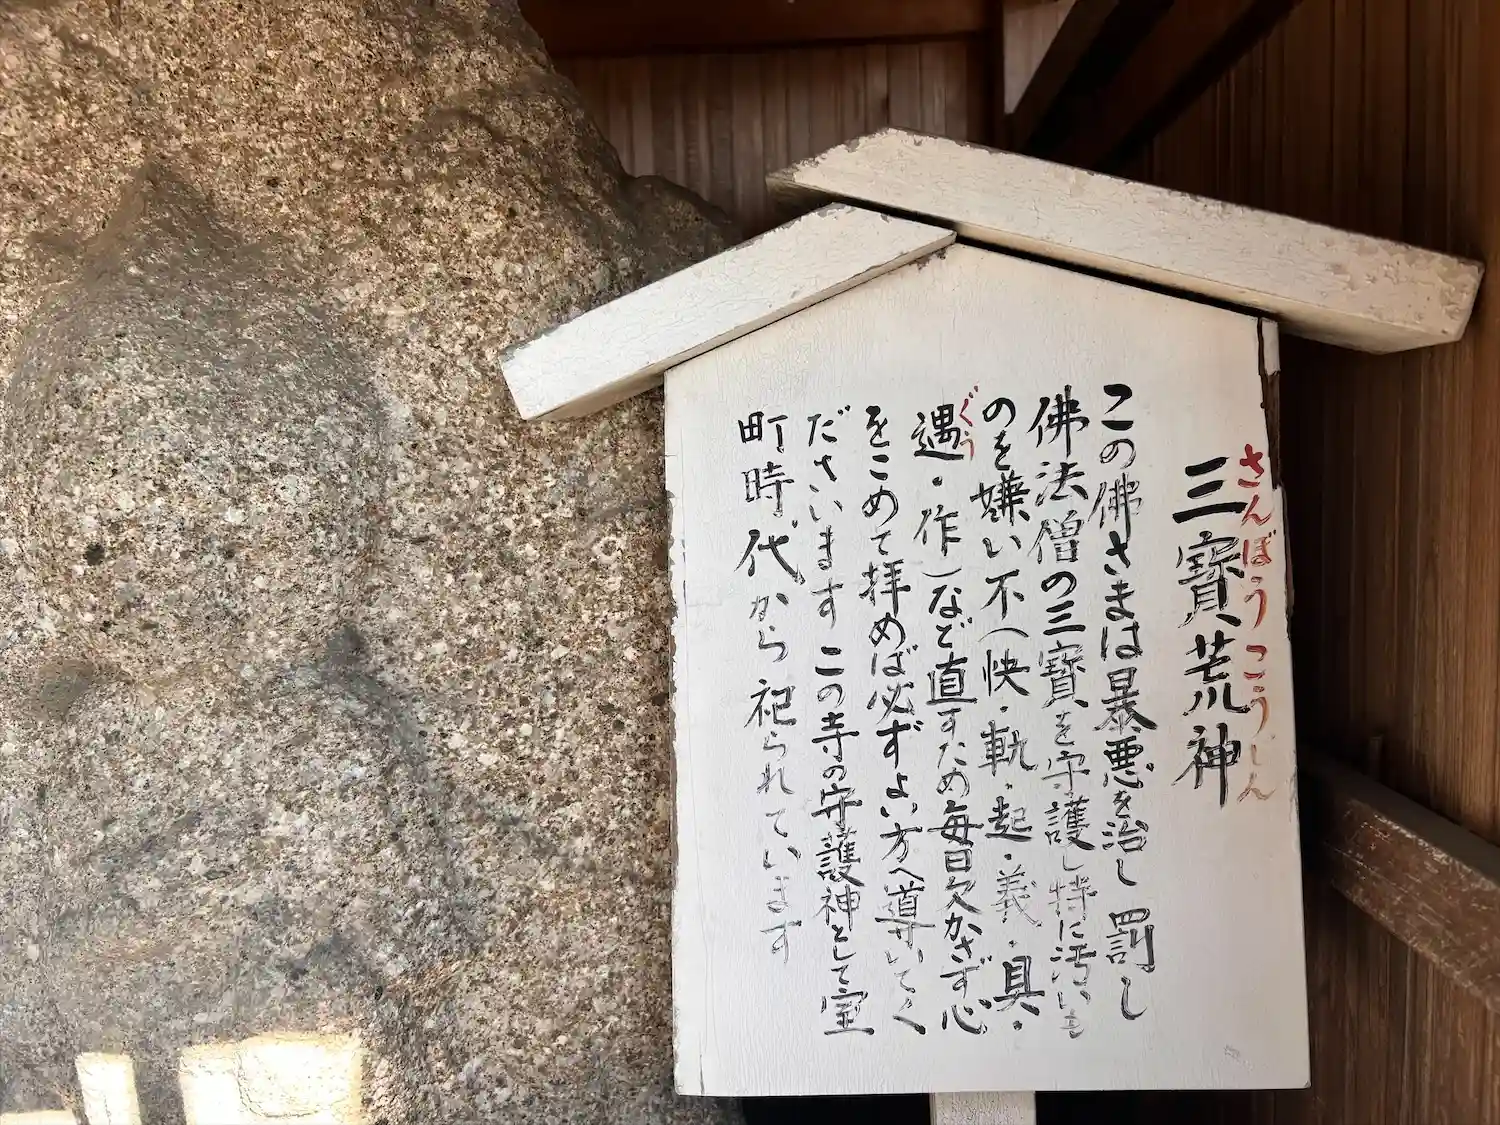 さんぼうこうじん
三寳荒神
この佛さまは暴悪を治し 罰し
佛法僧の三寳を守護し特に汚いも
のを嫌い不(快・軌・起・義・具・
ぐう
遇・作)など直すため毎日欠かさず心
をこめて拝めば必ずよい方へ導いてく
ださいます この寺の守護神として室
町時代から祀られています